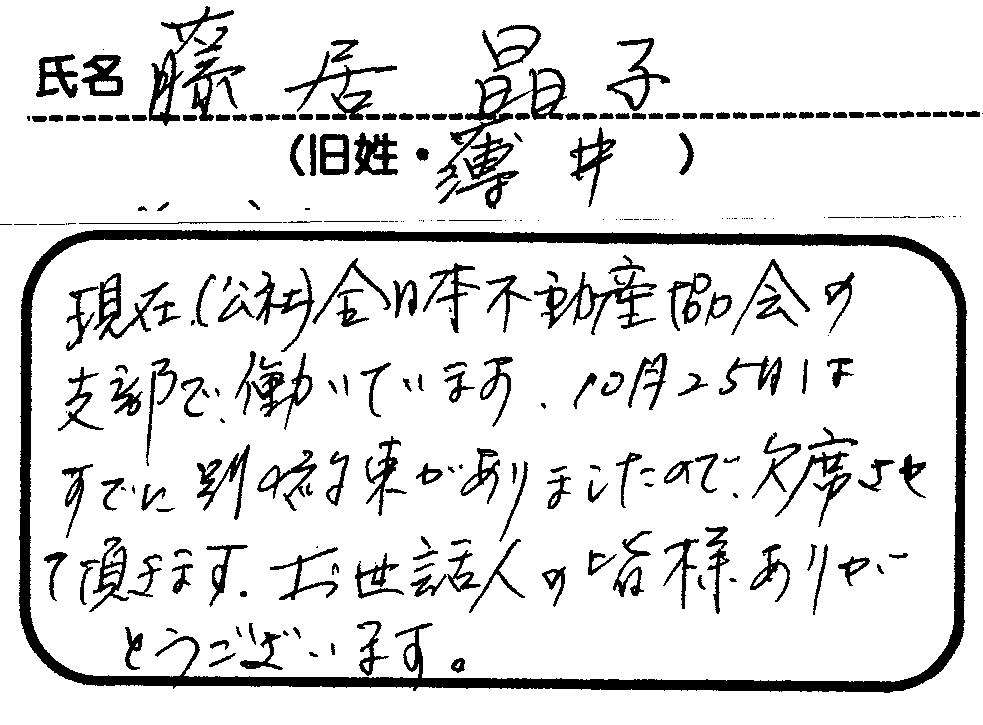 氏名 藤居 晶子
(旧姓・薄井)
現在、(公社)全日本不動産協会の
支部で、働いています。10月25日は
すでに別の約束がありましたので、欠席させ
て頂きます。お世話人の皆様ありが
とうございます。